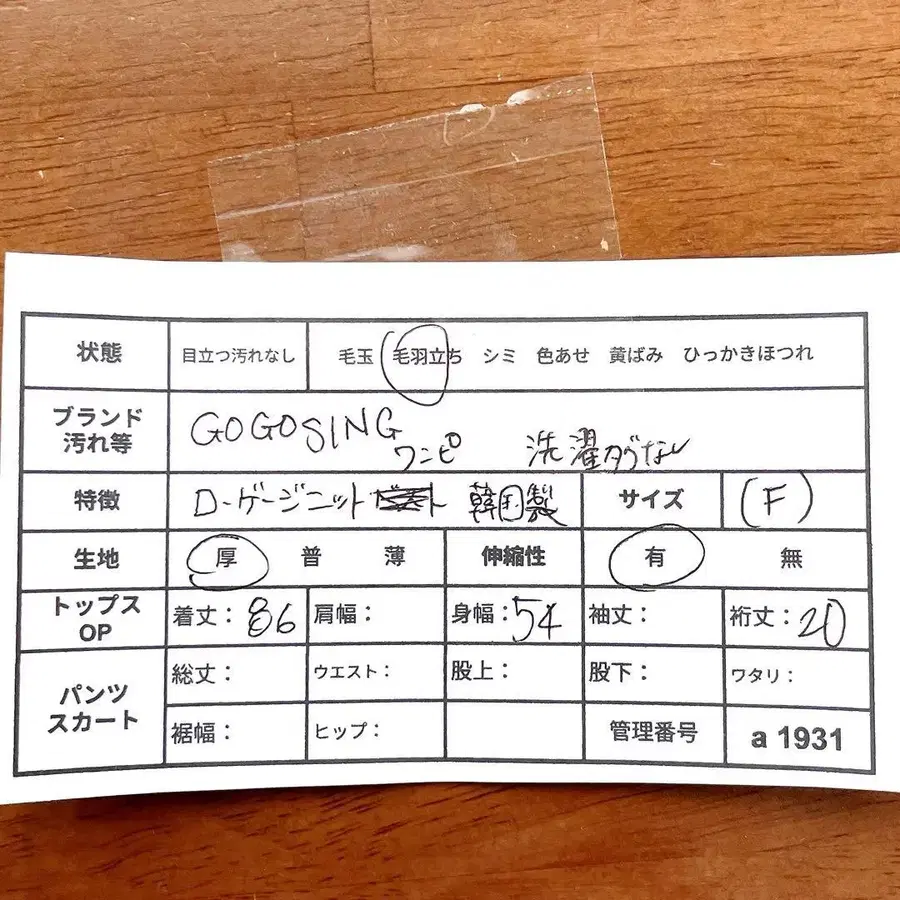 状態 目立つ汚れなし 毛玉 毛羽立ち シミ 色あせ 黄ばみ ひっかきほつれ
ブランド 汚れ等 GOGOSING ワンピ 洗濯タグなし
特徴 ローゲージニット 韓国製 サイズ (F)
生地 厚 普 薄 伸縮性 有 無
トップス OP 着丈：86 肩幅： 身幅：54 袖丈： 裄丈：20
パンツ スカート 総丈： ウエスト： 股上： 股下： ワタリ：
裾幅： ヒップ： 管理番号 a 1931